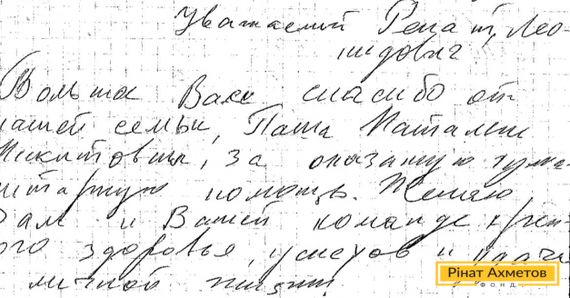 Уважаемый Ренат, Лео-
нидович
Больша Вам спасибо от
нашей семьи, Паша Наталии
Никитовны, за оказаную гума-
нитарную помощь. Желаю
Вам и Вашей команде креп-
ого здоровья, успехов и
личной жизни!
Рінат Ахметов
ФОНД